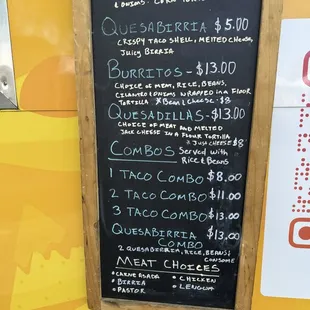 & ONIONS. CORN TORTILLA
QUESABIRRIA $5.00
CRISPY TACO SHELL, MELTED CHEESE,
JUICY BIRRIA
BURRITOS - $13.00
CHOICE OF MEAT, RICE, BEANS,
CILANTRO & ONIONS WRAPPED IN A FLOUR
TORTILLA * BEAN & CHEESE - $8
QUESADILLAS - $13.00
CHOICE OF MEAT AND MELTED
JACK CHEESE IN A FLOUR TORTILLA
* JUST CHEESE $8
COMBOS SERVED WITH
RICE & BEANS
1 TACO COMBO $8.00
2 TACO COMBO $11.00
3 TACO COMBO $13.00
QUESABIRRIA $13.00
COMBO
2 QUESABIRRIA, RICE, BEANS &
CONSOME
MEAT CHOICES
• CARNE ASADA • CHICKEN
• BIRRIA • LENGUA
• PASTOR